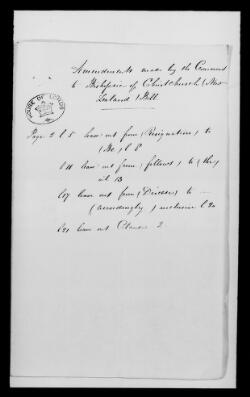 Amendments made by the Commons
to Bishopric of Christchurch (New
Zealand) Bill
HOUSE OF LORDS
Page 2 l 5 leave out from (Resignation) to
(the) l 8
l 11 leave out from (follows) to (the)
in l 13
l 17 leave out from (Diocese) to
(accordingly) inclusive l 20
l 21 leave out Clause 2